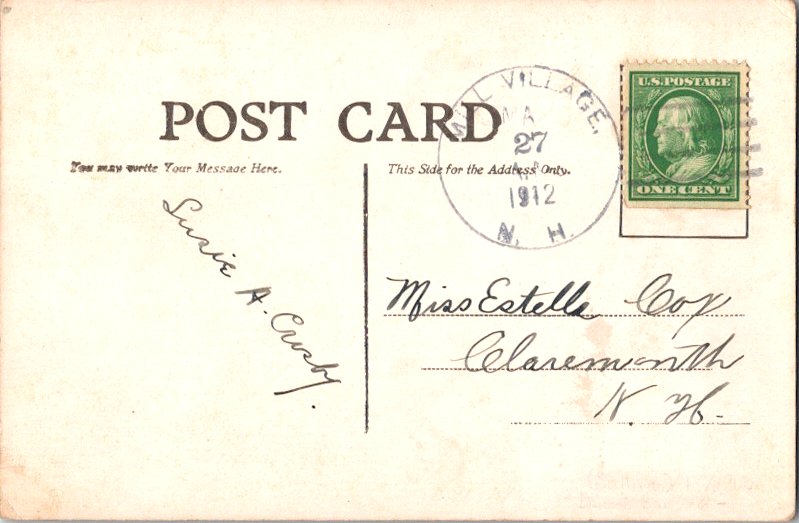 POST CARD
You may write Your Message Here.
This Side for the Address Only.
MILL VILLAGE,
27
1912
N. H.
U.S. POSTAGE
ONE CENT
Susie A. Crosby.
Miss Estella Coy
Claremonth
N. H.